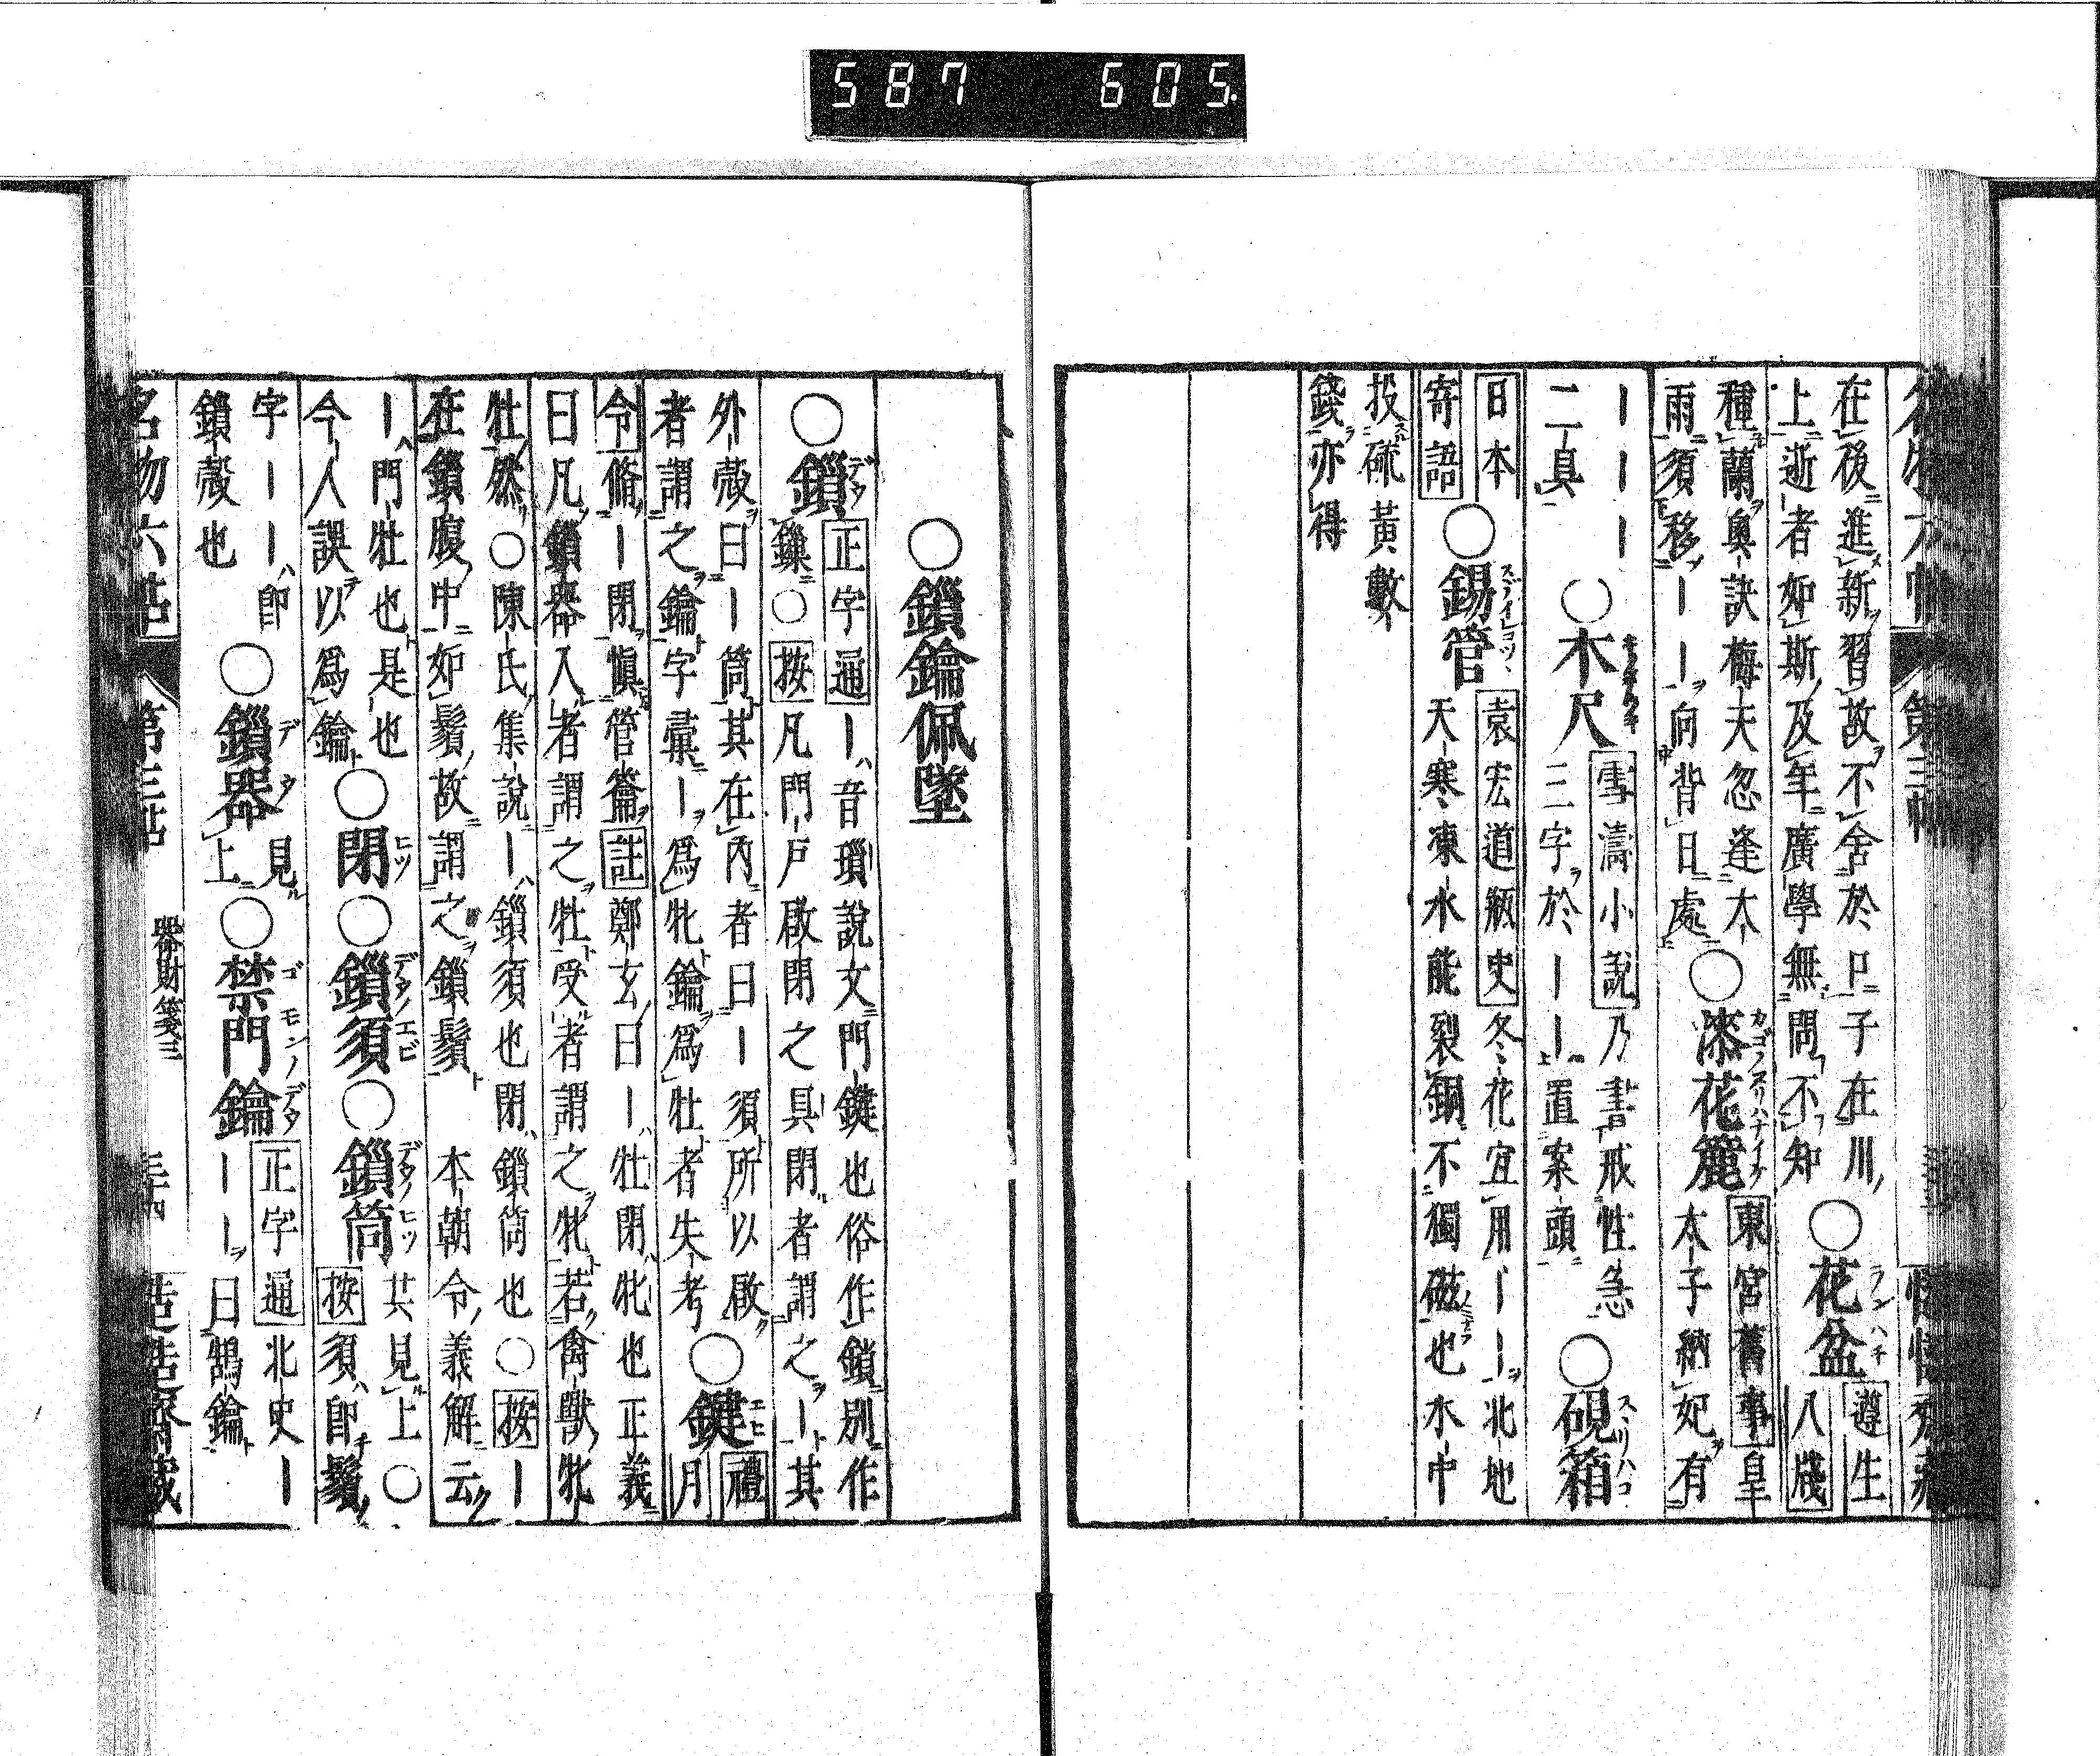 587 605.
名物六帖 第三帖
在後進新習故不舍於卩子在川
上逝者如斯及年廣學無問不知
○花盆 ランハチ
遵生
八牋
種蘭奧訣梅天忽逢大
雨須移｜｜向背日處
○漆花籠
東宮舊事皇
太子納妃有
｜｜｜
二具
○木尺
雪濤小說乃書戒性急
三字於｜｜置案頭
○硯箱 スヾリハコ
日本
寄語
○錫管
袁宏道瓶史冬花宜用｜｜北地
天寒凍水能裂銅不獨磁也水中
投硫黃數
錢亦得
○鎖鑰佩墜
○鎖 デウ
正字通｜音瑣說文門鍵也俗作鎖別作
鏁○按凡門戶啟閉之具閉者謂之｜其
外殼曰｜筒其在內者曰｜須所以啟
者謂之鑰字彙｜爲牝鑰爲牡者失考
○鍵 エヒ
禮
月
令脩｜閉愼管籥註鄭玄曰｜牡閉牝也正義
曰凡鎖器入者謂之牡受者謂之牝若禽獸牝
牡然○陳氏集說｜鎖須也閉鎖筒也○按｜
在鎖腹中如鬚故謂之鎖鬚 本朝令義解云
｜門牡也是也
今人誤以爲鑰
○閉 ヒツ
○鎖須 デウノエビ
○鎖筒 デウノヒツ
共見上○
按須即鬚
字｜｜即
鎖殼也
○鎖器 デウ
見
上
○禁門鑰 ゴモンノデウ
正字通北史｜
｜｜曰鵠鑰
名物六帖 第三帖 器財箋三